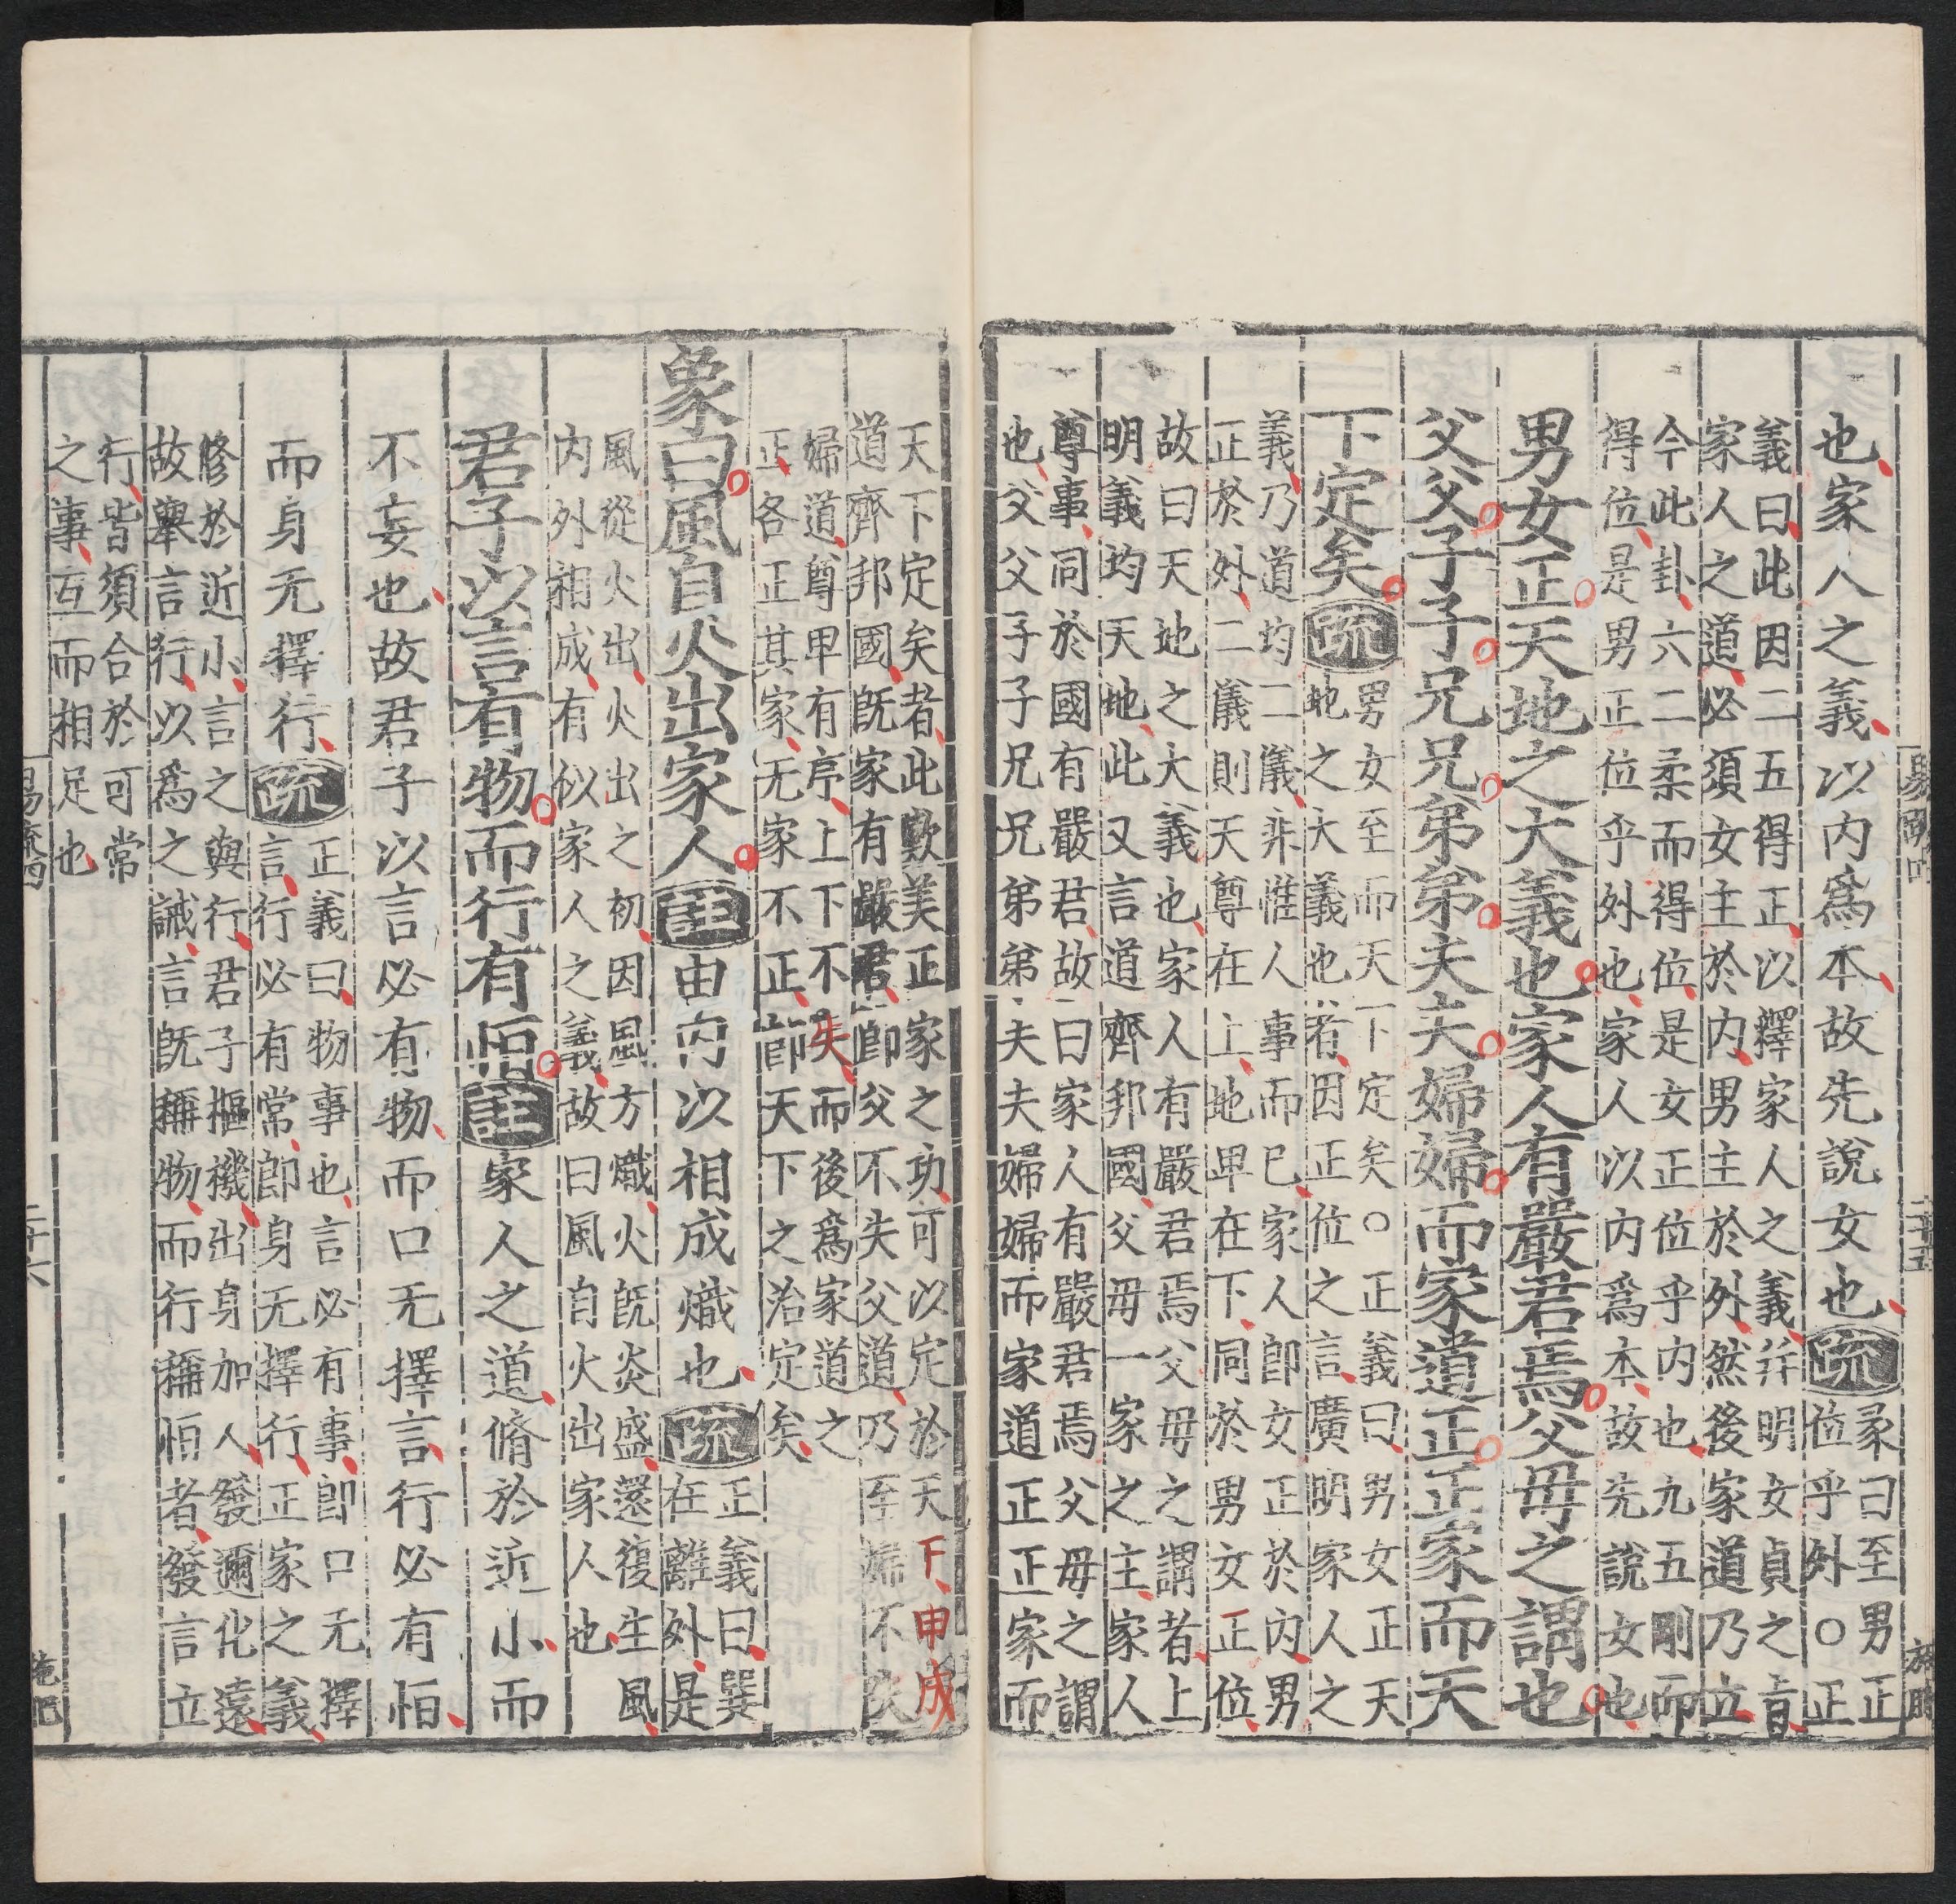 也家人之義以内爲本故先說女也疏彖曰至男正
位乎外○正
義曰此因二五得正以釋家人之義并明女貞之旨
家人之道必須女主於内男主於外然後家道乃立
今此卦六二柔而得位是女正位乎内也九五剛而
得位是男正位乎外也家人以内爲本故先說女也
男女正天地之大義也家人有嚴君焉父母之謂也
父父子子兄兄弟弟夫夫婦婦而家道正正家而天
下定矣疏男女至而天下定矣○正義曰男女正天
地之大義也者因正位之言廣明家人之
義乃道均二儀非惟人事而已家人卽女正於内男
正於外二儀則天尊在上地卑在下同於男女正位
故曰天地之大義也家人有嚴君焉父母之謂者上
明義均天地此又言道齊邦國父母一家之主家人
尊事同於國有嚴君故曰家人有嚴君焉父母之謂
也父父子子兄兄弟弟夫夫婦婦而家道正正家而
天下定矣者此歎美正家之功可以定於天下申成
道齊邦國旣家有嚴君卽父不失父道乃至婦不失
婦道尊卑有序上下不失而後爲家道之
正各正其家无家不正卽天下之治定矣
象曰風自火出家人註由内以相成熾也疏正義曰巽
在離外是
風從火出火出之初因風方熾火旣炎盛還復生風
内外相成有似家人之義故曰風自火出家人也
君子以言有物而行有恒註家人之道脩於近小而
不妄也故君子以言必有物而口无擇言行必有恒
而身无擇行疏正義曰物事也言必有事卽口无擇
言行必有常卽身无擇行正家之義
修於近小言之與行君子樞機出身加人發邇化遠
故舉言行以爲之誡言旣稱物而行稱恒者發言立
行皆須合於可常
之事互而相足也
易疏四
二十六